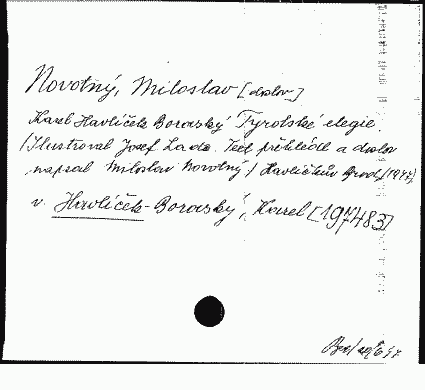 Novotný, Miloslav [doslov]
Karel Havlíček Borovský Tyrolské elegie.
/Ilustroval Josef Lada. Text přehlédl a doslov
napsal Miloslav Novotný/ Havlíčkův Brod,/1947/
v. Havlíček-Borovský, Karel [197483]